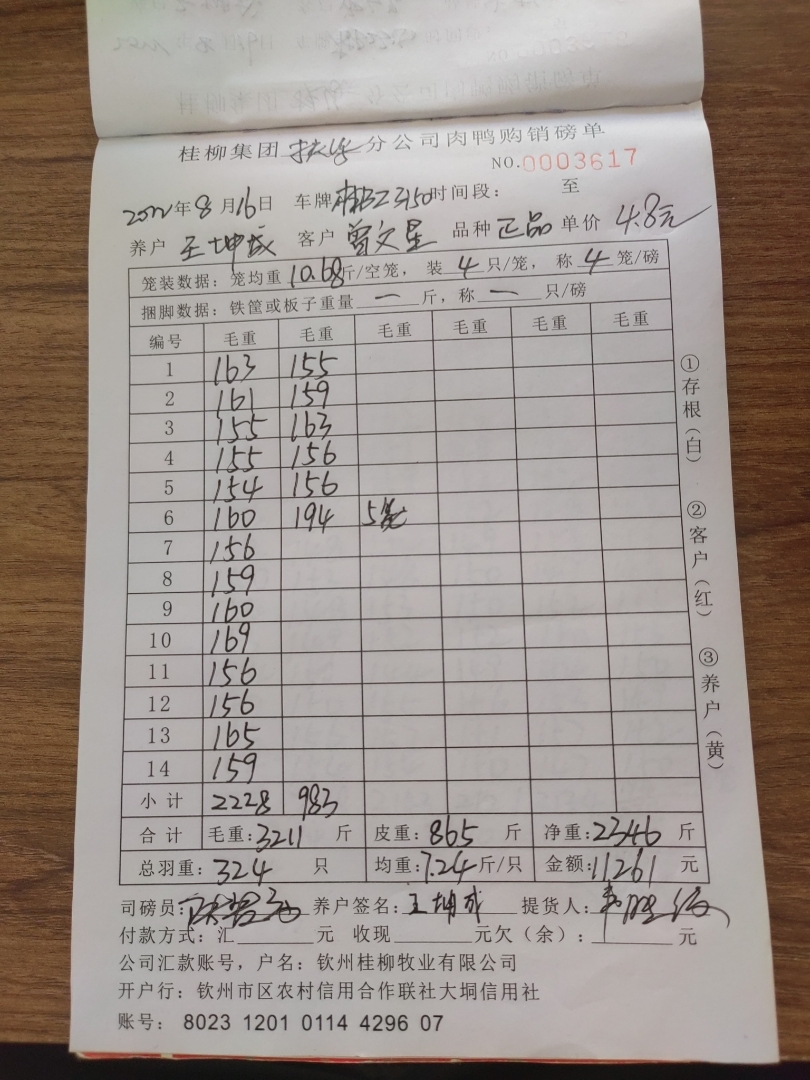 桂柳集团 分公司肉鸭购销磅单
NO.0003617
2022年8月16日 车牌桂BZ3150时间段: 至
养户 王坤成 客户 曾文星 品种 正品 单价 4.8元
笼装数据:笼均重 10.68斤/空笼,装 4 只/笼,称 4 笼/磅
捆脚数据:铁筐或板子重量 一 斤,称 一 只/磅
编号 毛重 毛重 毛重 毛重 毛重 毛重
1 163 155
2 161 159
3 155 163
4 155 156
5 154 156
6 160 194 5笼
7 156
8 159
9 160
10 169
11 156
12 156
13 165
14 159
小计 2228 983
合计 毛重:3211 斤 皮重:865 斤 净重:2346 斤
总羽重:324 只 均重:7.24斤/只 金额:11261 元
司磅员: 养户签名:王坤成 提货人:
付款方式:汇 元 收现 元欠(余): 元
公司汇款账号,户名:钦州桂柳牧业有限公司
开户行:钦州市区农村信用合作联社大垌信用社
账号: 8023 1201 0114 4296 07
①存根(白)
②客户(红)
③养户(黄)